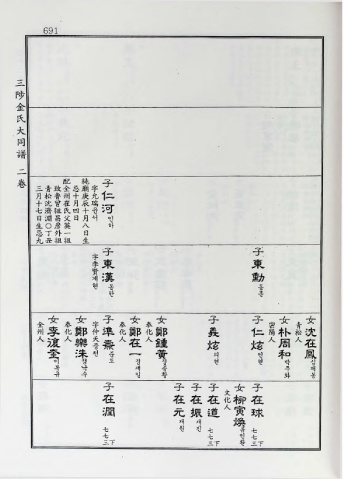 691
三陟金氏大同譜 二卷
子東勳 동훈
女沈在鳳 심재봉
靑松人
女朴周和 박주화
密陽人
子仁炫 인현
子在球 下七七三
女柳寅煥 유인환
文化人
子義炫 의현
子在道 下七七三
子在振 재진
子在元 재원
子仁河 인하
字允瑞 윤서
純廟庚辰十月八日生
忌十月四日
配全州崔氏父英一祖
啟魯曾祖昌彦外祖
靑松沈瀣淵〇丁丑
三月十七日生忌九
子東漢 동한
字季賢 계현
女鄭鍾黃 정종황
奉化人
女鄭在一 정재일
奉化人
子準燾 준도
字仲天 중천
子在潤 下七七三
女鄭樂洙 정낙수
奉化人
女李復奎 이복규
全州人